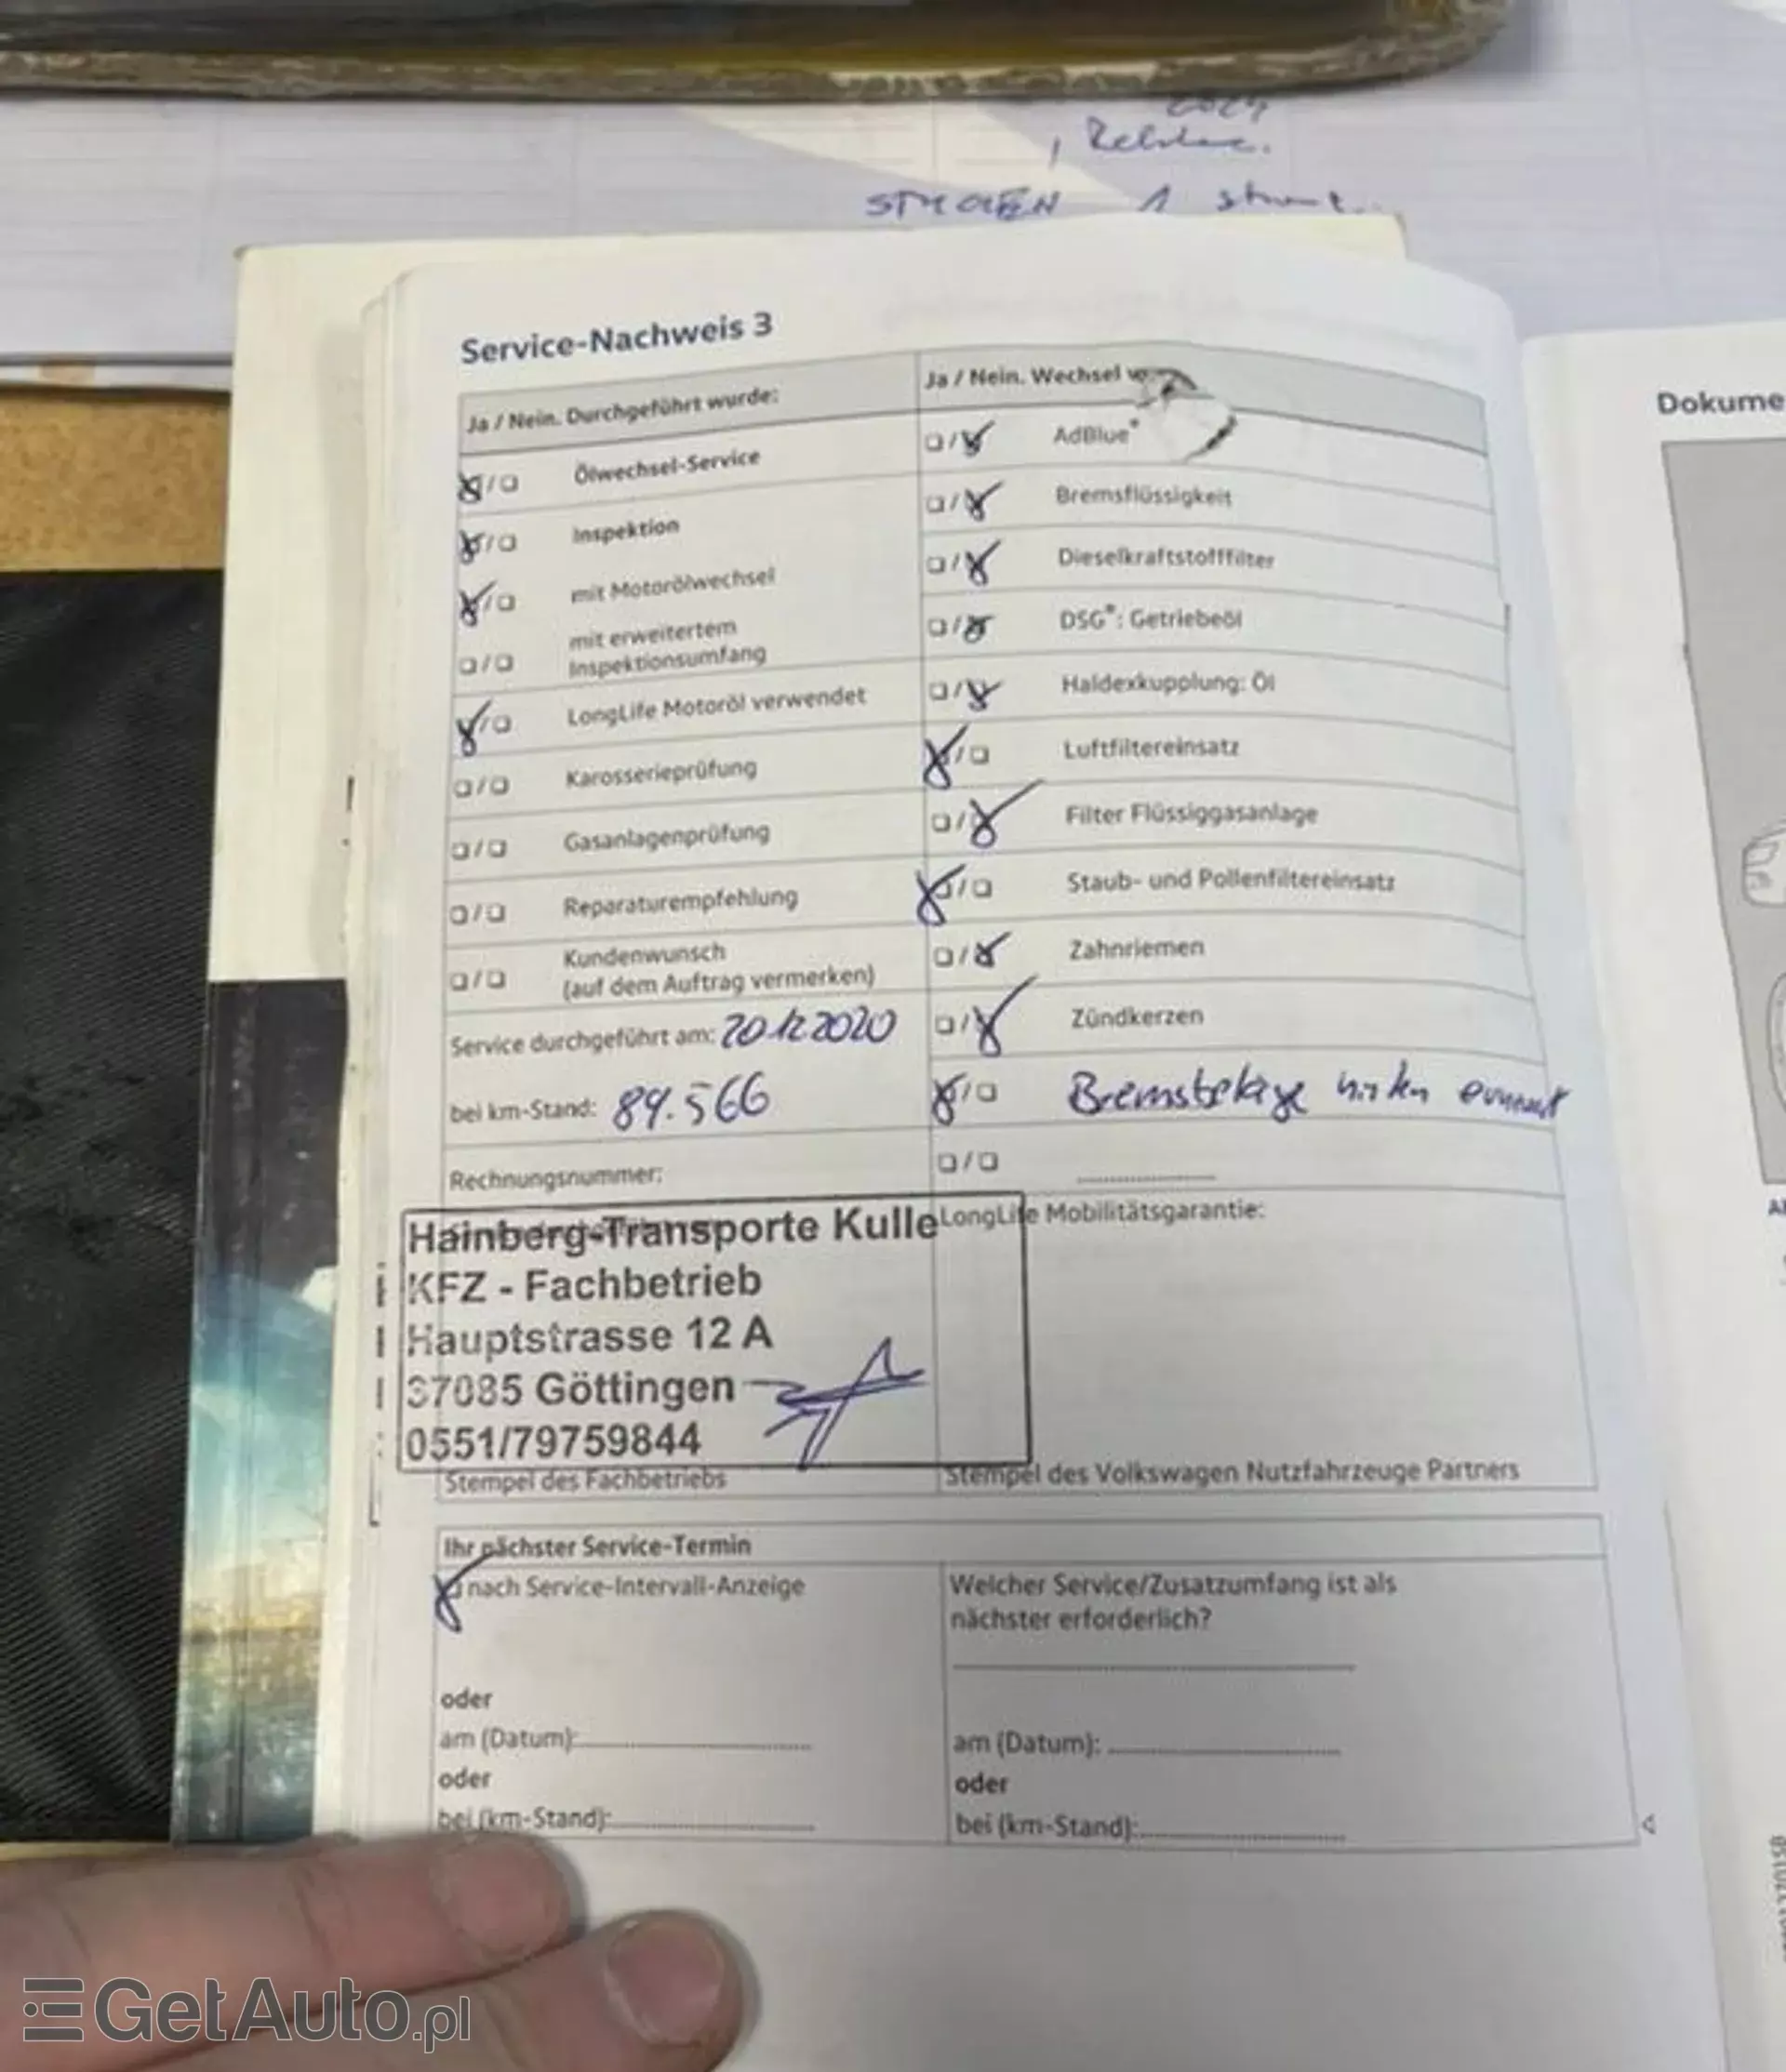 STUCHEN 1
Service-Nachweis 3
Ja / Nein. Durchgeführt wurde:
☒/☐ Ölwechsel-Service
☒/☐ Inspektion
☒/☐ mit Motorölwechsel
☐/☐ mit erweitertem
Inspektionsumfang
☒/☐ LongLife Motoröl verwendet
☐/☐ Karosserieprüfung
☐/☐ Gasanlagenprüfung
☐/☐ Reparaturempfehlung
☐/☐ Kundenwunsch
(auf dem Auftrag vermerken)
Service durchgeführt am: 20.12.2020
bei km-Stand: 89.566
Rechnungsnummer:
Ja / Nein. Wechsel
☐/☒ AdBlue®
☐/☒ Bremsflüssigkeit
☐/☒ Dieselkraftstofffilter
☐/☒ DSG®: Getriebeöl
☐/☒ Haldexkupplung: Öl
☒/☐ Luftfiltereinsatz
☐/☒ Filter Flüssiggasanlage
☒/☐ Staub- und Pollenfiltereinsatz
☐/☒ Zahnriemen
☐/☒ Zündkerzen
☒/☐ Bremsbeläge hinten erneuert
☐/☐
Hainberg-Transporte Kulle
KFZ - Fachbetrieb
Hauptstrasse 12 A
37085 Göttingen
0551/79759844
Stempel des Fachbetriebs
LongLife Mobilitätsgarantie:
Stempel des Volkswagen Nutzfahrzeuge Partners
Ihr nächster Service-Termin
☒ nach Service-Intervall-Anzeige
oder
am (Datum):
oder
bei (km-Stand):
Welcher Service/Zusatzumfang ist als
nächster erforderlich?
am (Datum):
oder
bei (km-Stand):
Dokume
GetAuto.pl